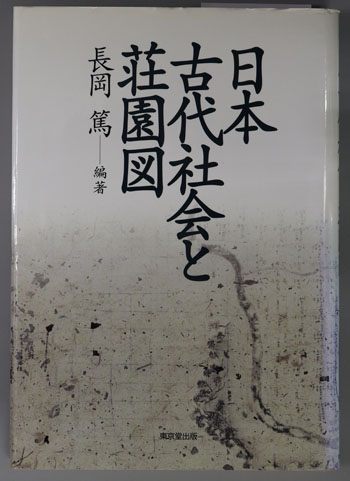 日本
古代社会と
荘園図
長岡篤──編著
東京堂出版